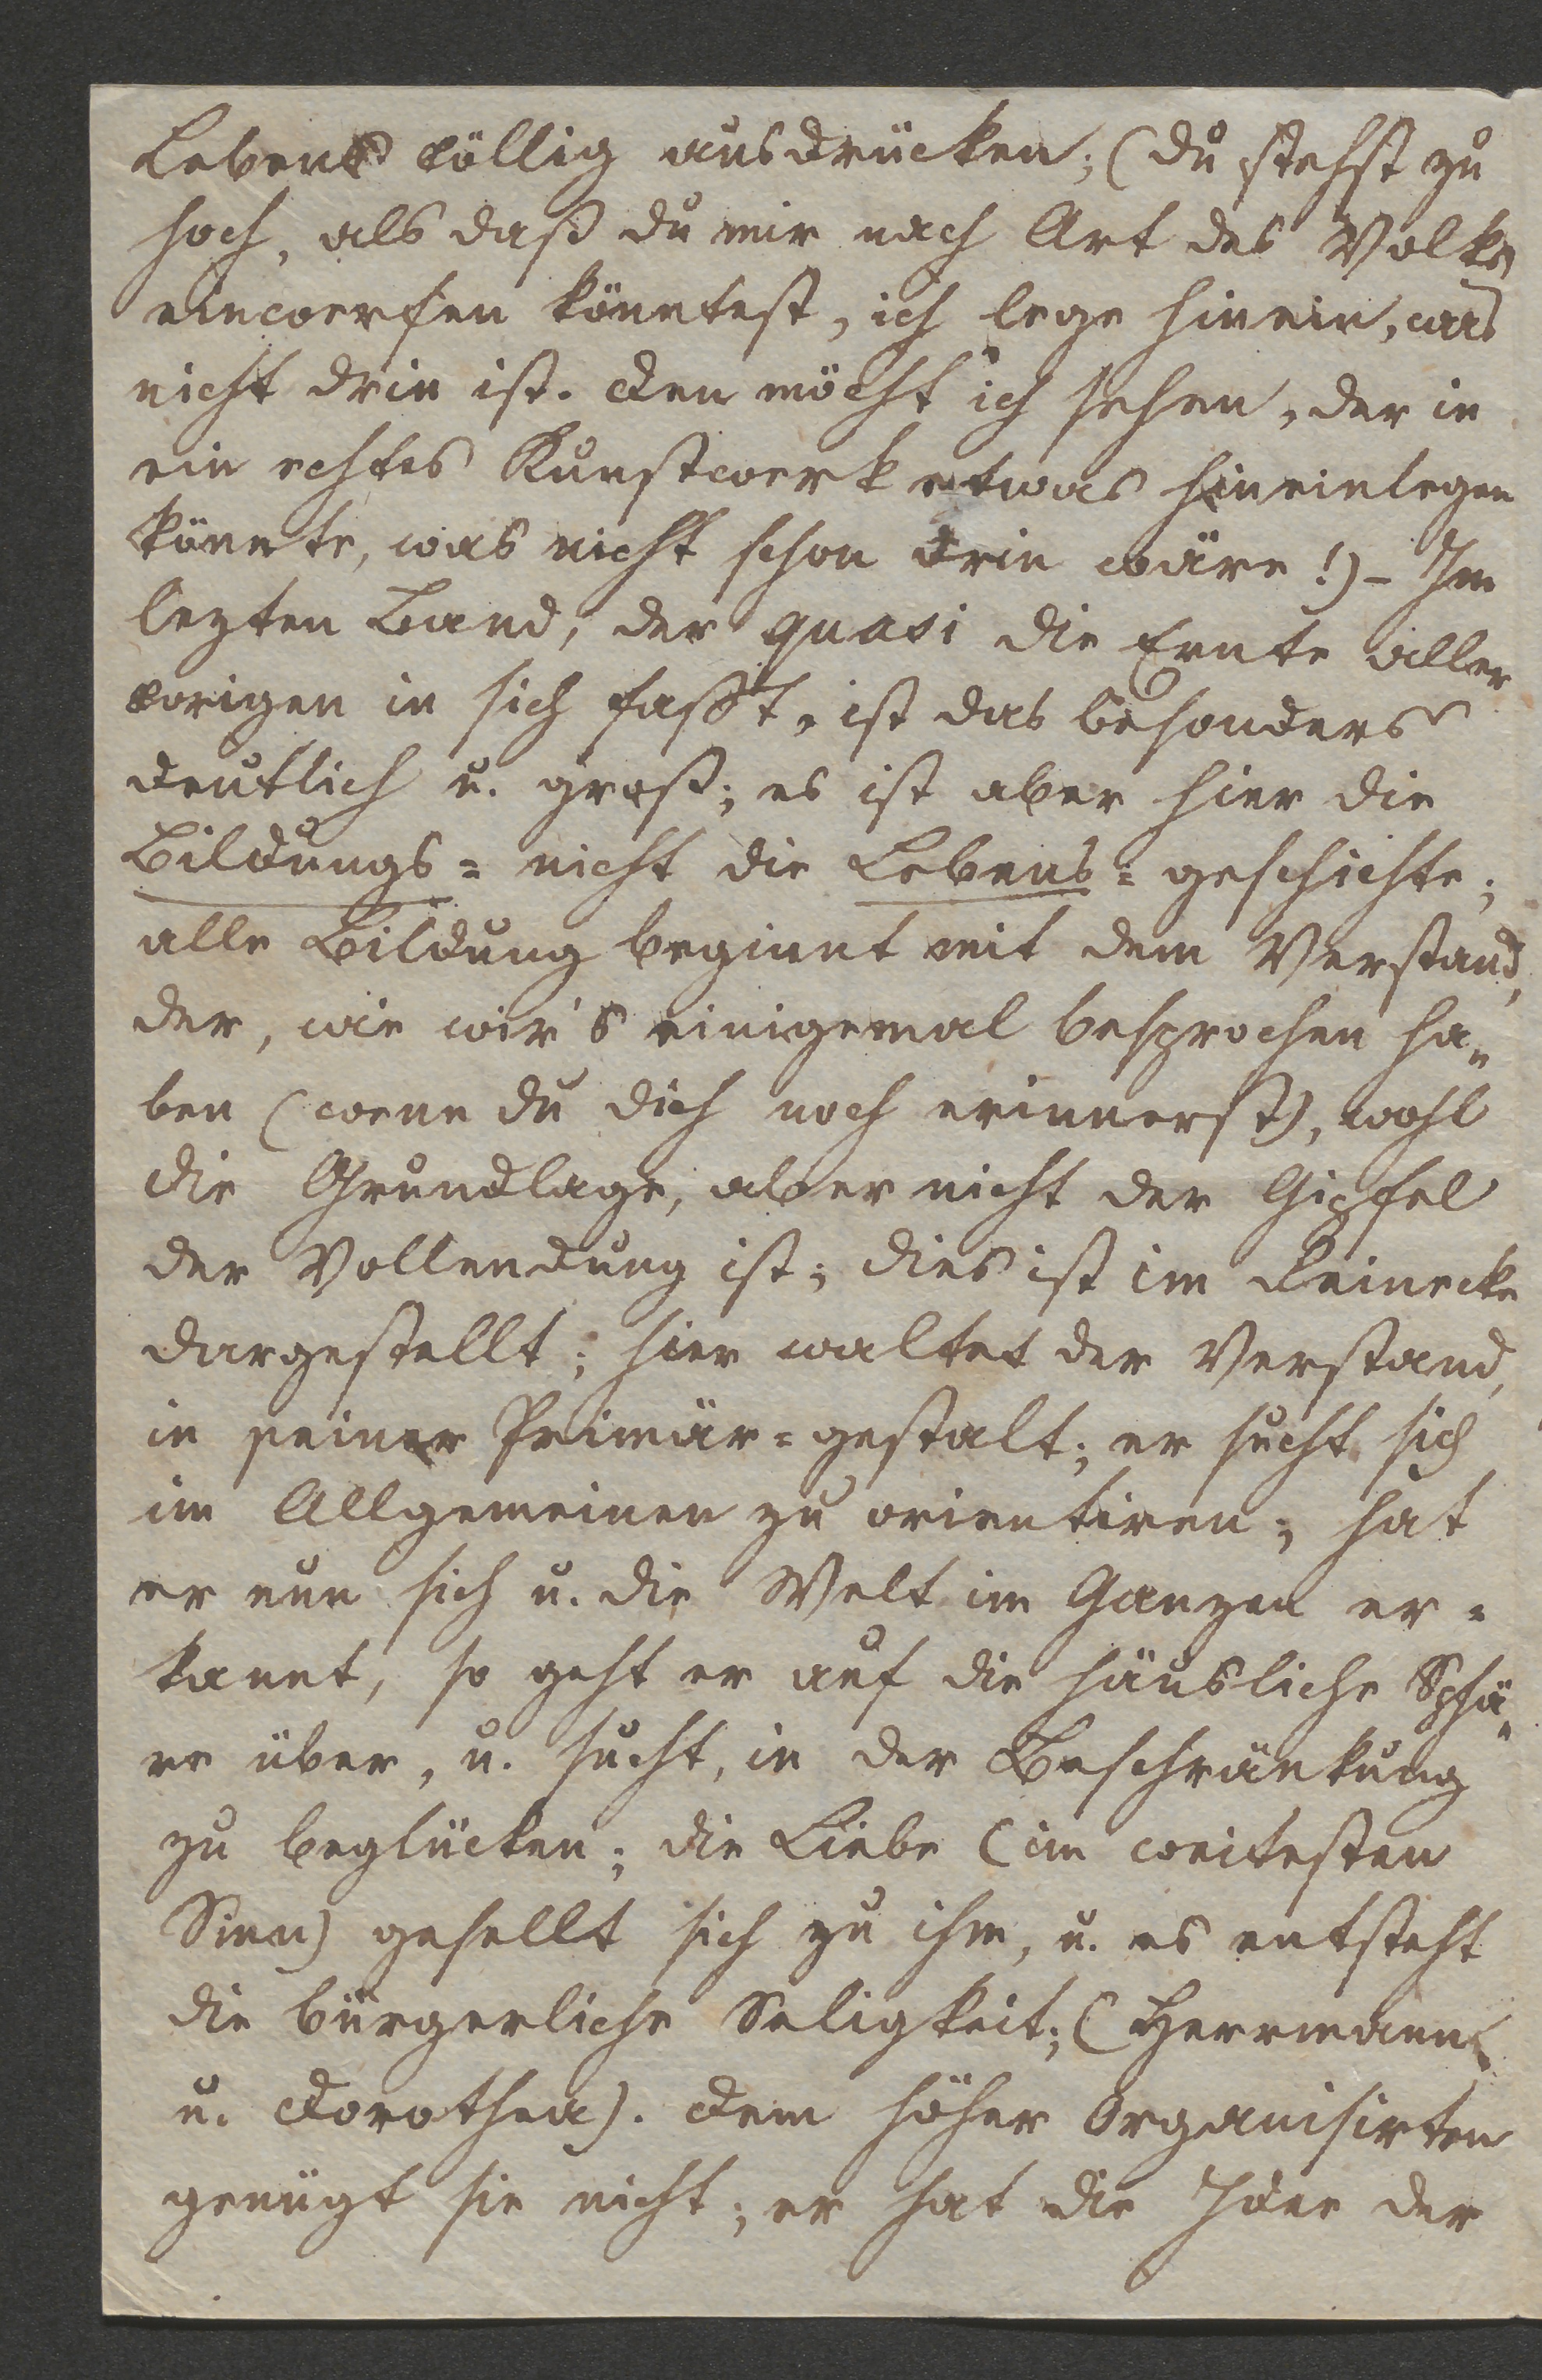 Lebens völlig ausdrücken; (du stehst zu
hoch, als daß du mir nach Art des Volks
einwerfen könntest, ich lege hinein, was
nicht drin ist. Den möcht' ich sehen, der in
ein echtes Kunstwerk etwas hineinlegen
könnte, was nicht schon drin wäre!) – Im
lezten Band, der quasi die Ernte aller
vorigen in sich faßt, ist das besonders
deutlich u. groß; es ist aber hier die
Bildungs= nicht die Lebens=geschichte;
alle Bildung beginnt mit dem Verstand,
der, wie wir's einigemal besprochen ha=
ben (wenn du dich noch erinnerst), wohl
die Grundlage, aber nicht der Gipfel
der Vollendung ist; dies ist im Reinecke
dargestellt; hier waltet der Verstand,
in seiner Primär=gestalt; er sucht sich
im Allgemeinen zu orientiren; hat
er nun sich u. die Welt im Ganzen er=
kannt, so geht er auf die häusliche Sphä=
re über, u. sucht, in der Beschränkung
zu beglücken; die Liebe (im weitesten
Sinn) gesellt sich zu ihm, u. es entsteht
die bürgerliche Seligkeit; (Herrmann
u. Dorothea). Dem höher Organisirten
genügt sie nicht; er hat die Idee der